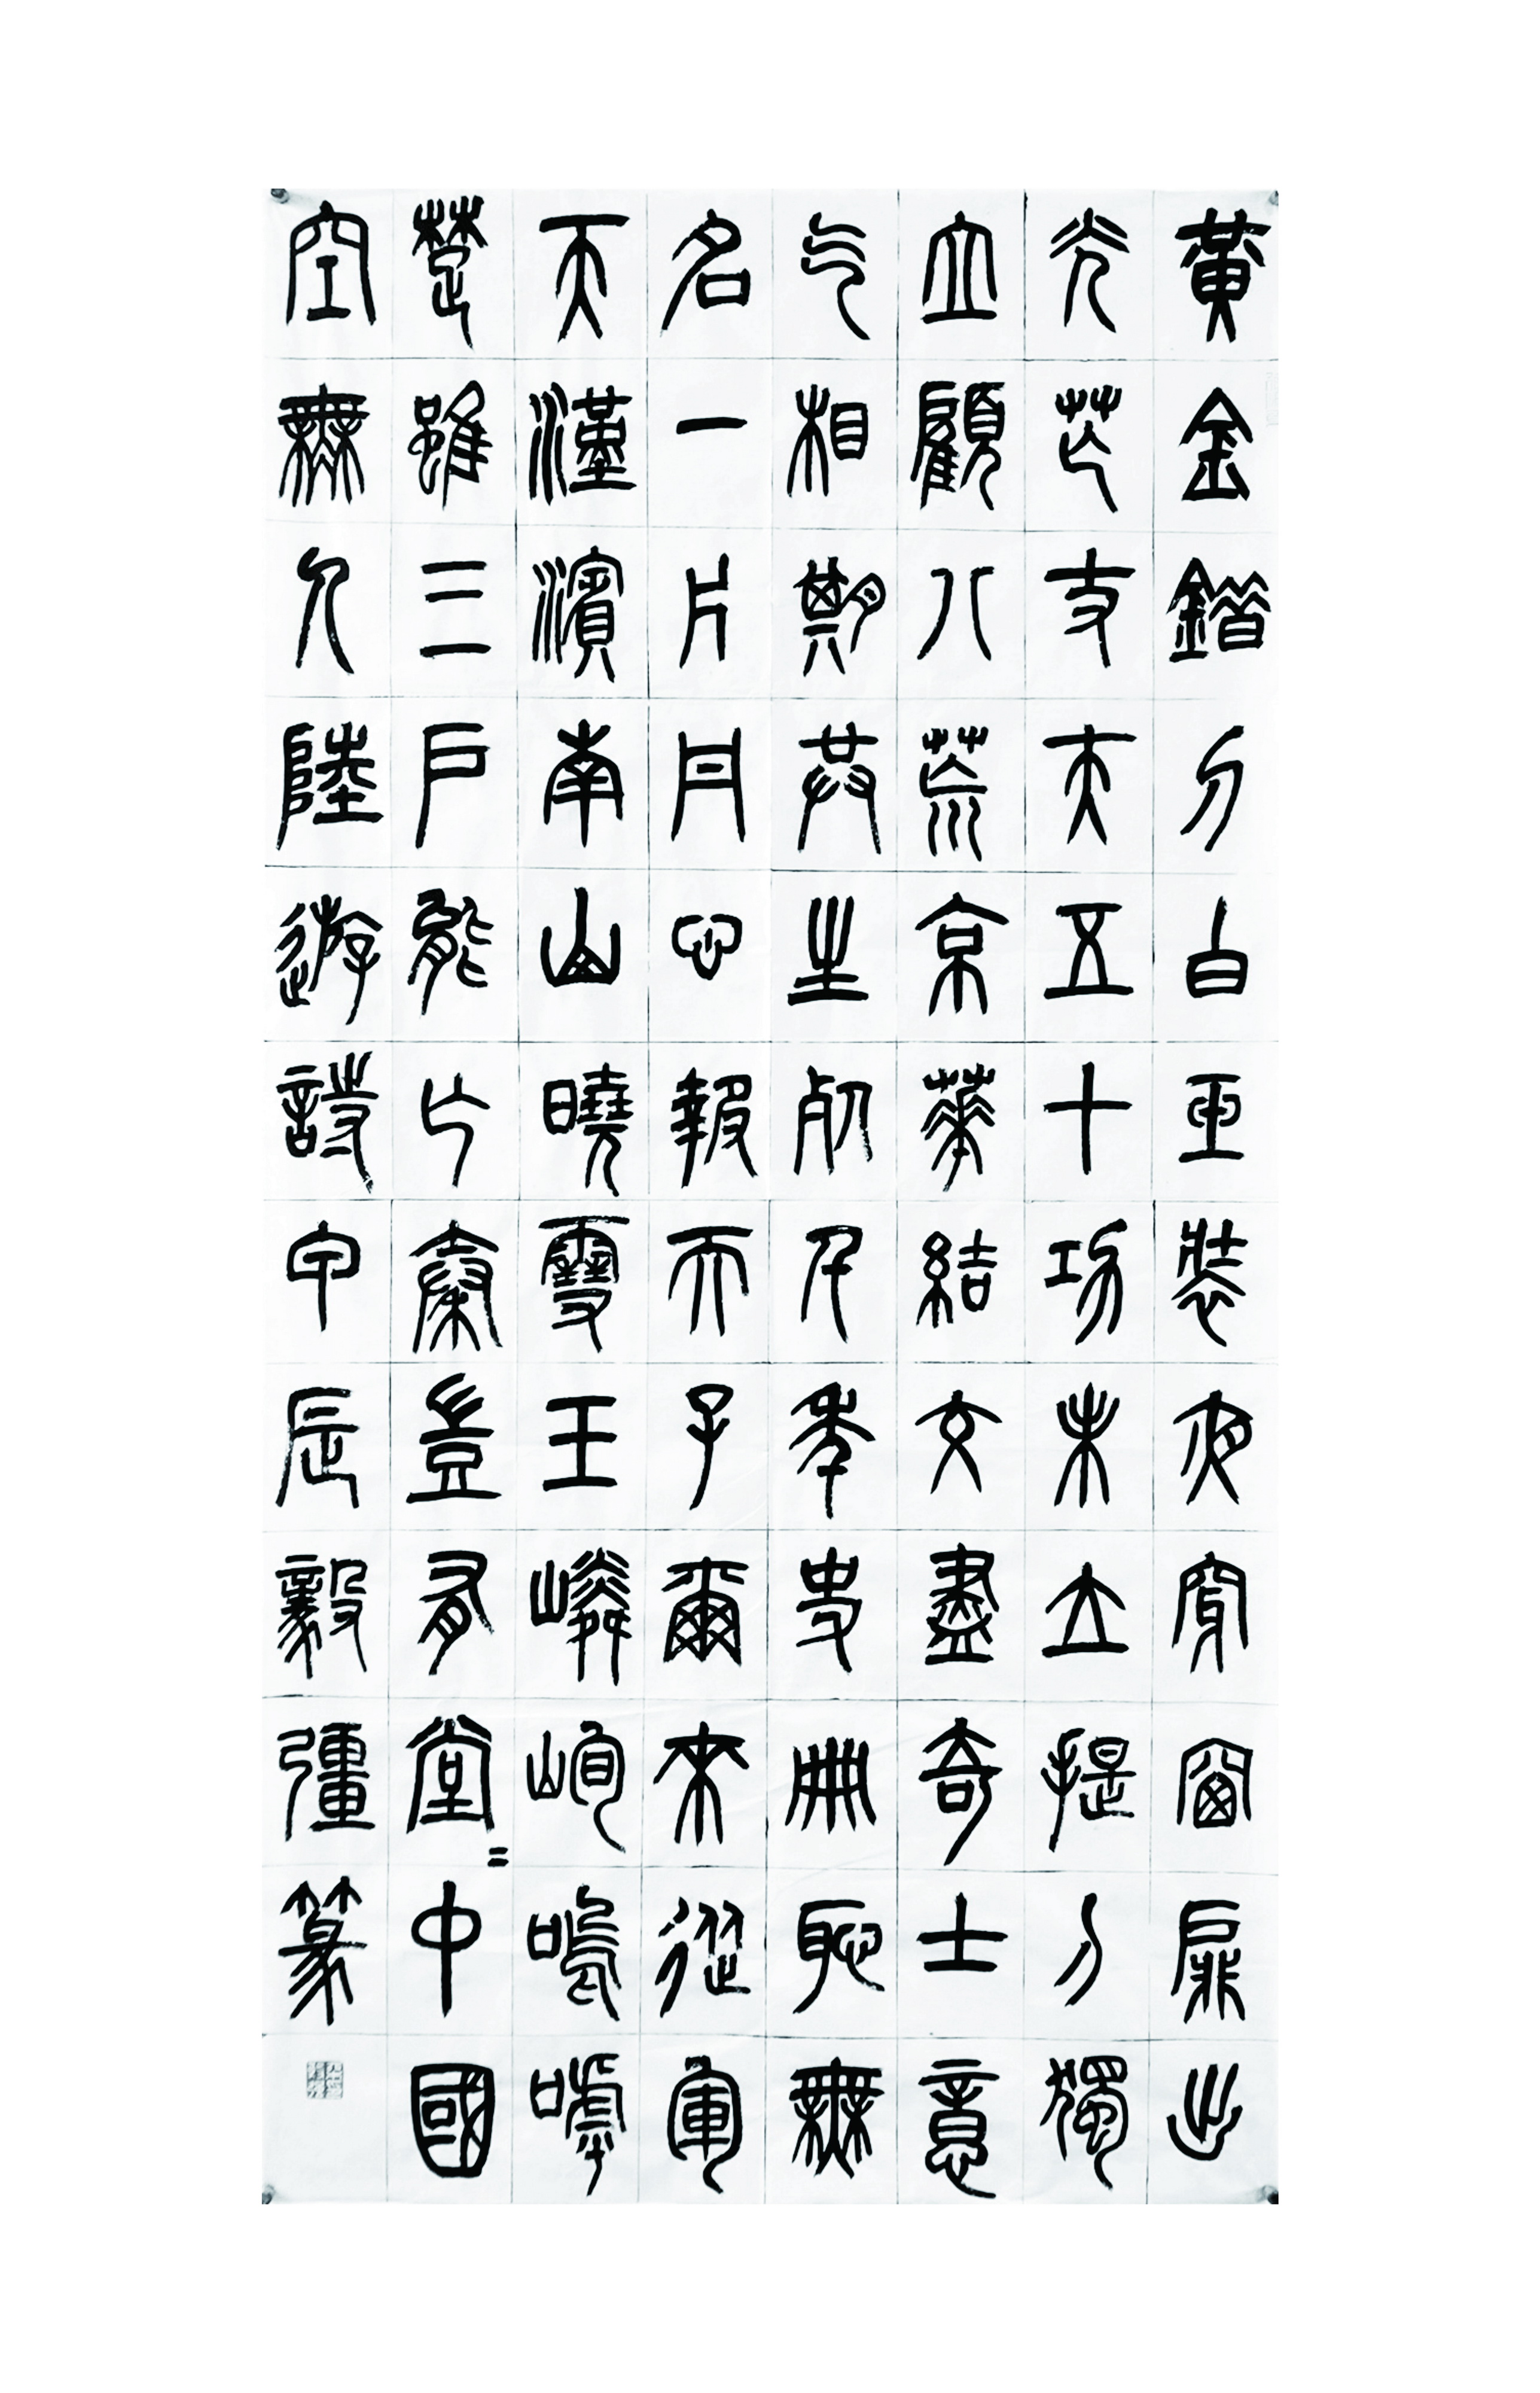 黃金錯刀白玉裝夜穿窗扉出
光芒丈夫五十功未立提刀獨
立顧八荒京華結交盡奇士意
气相期共生死千年史冊恥無
名一片丹心報天子爾來從軍
天漢濱南山曉雪玉嶙峋嗚嘑
楚雖三戶能亡秦豈有堂〓中國
空無人陸遊詩甲辰毅彊篆